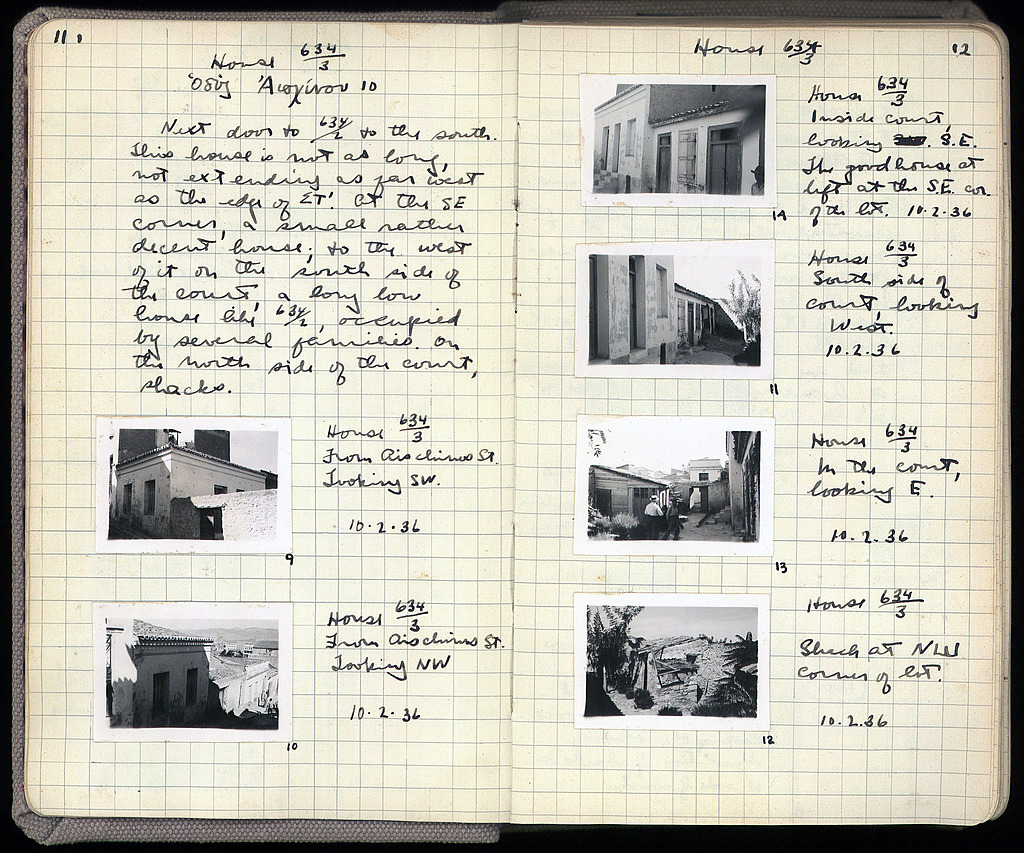 11
House 634/3
Ὁδός Αἰσχίνου 10
Next door to 634/2 to the south.
This house is not as long,
not extending as far west
as the edge of ΣΤ'. At the SE
corner, a small rather
decent house; to the west
of it on the south side of
the court, a long low
house like 634/2, occupied
by several families. On
the north side of the court,
shacks.
House 634/3
From Aischinos St.
Looking SW.
10.2.36
9
House 634/3
From Aischinos St.
Looking NW
10.2.36
10
House 634/3
12
House 634/3
Inside court,
looking S.E.
The good house at
left at the S.E. cor.
of the lot. 10.2.36
14
House 634/3
South side of
court, looking
West.
10.2.36
11
House 634/3
In the court,
looking E.
10.2.36
13
House 634/3
Shack at NW
corner of lot.
10.2.36
12